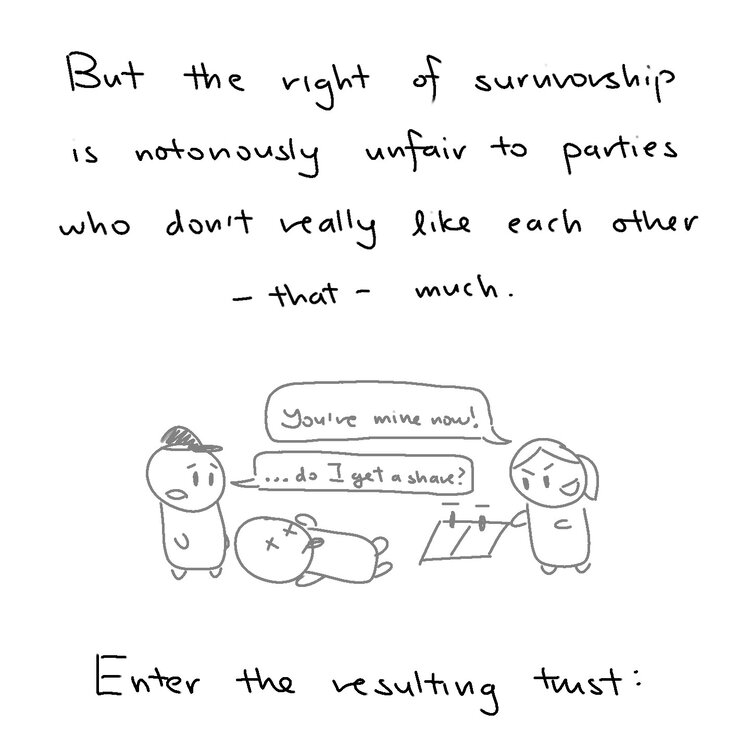 But the right of survivorship
is notoriously unfair to parties
who don't really like each other
- that - much.
You're mine now!
...do I get a share?
Enter the resulting trust: